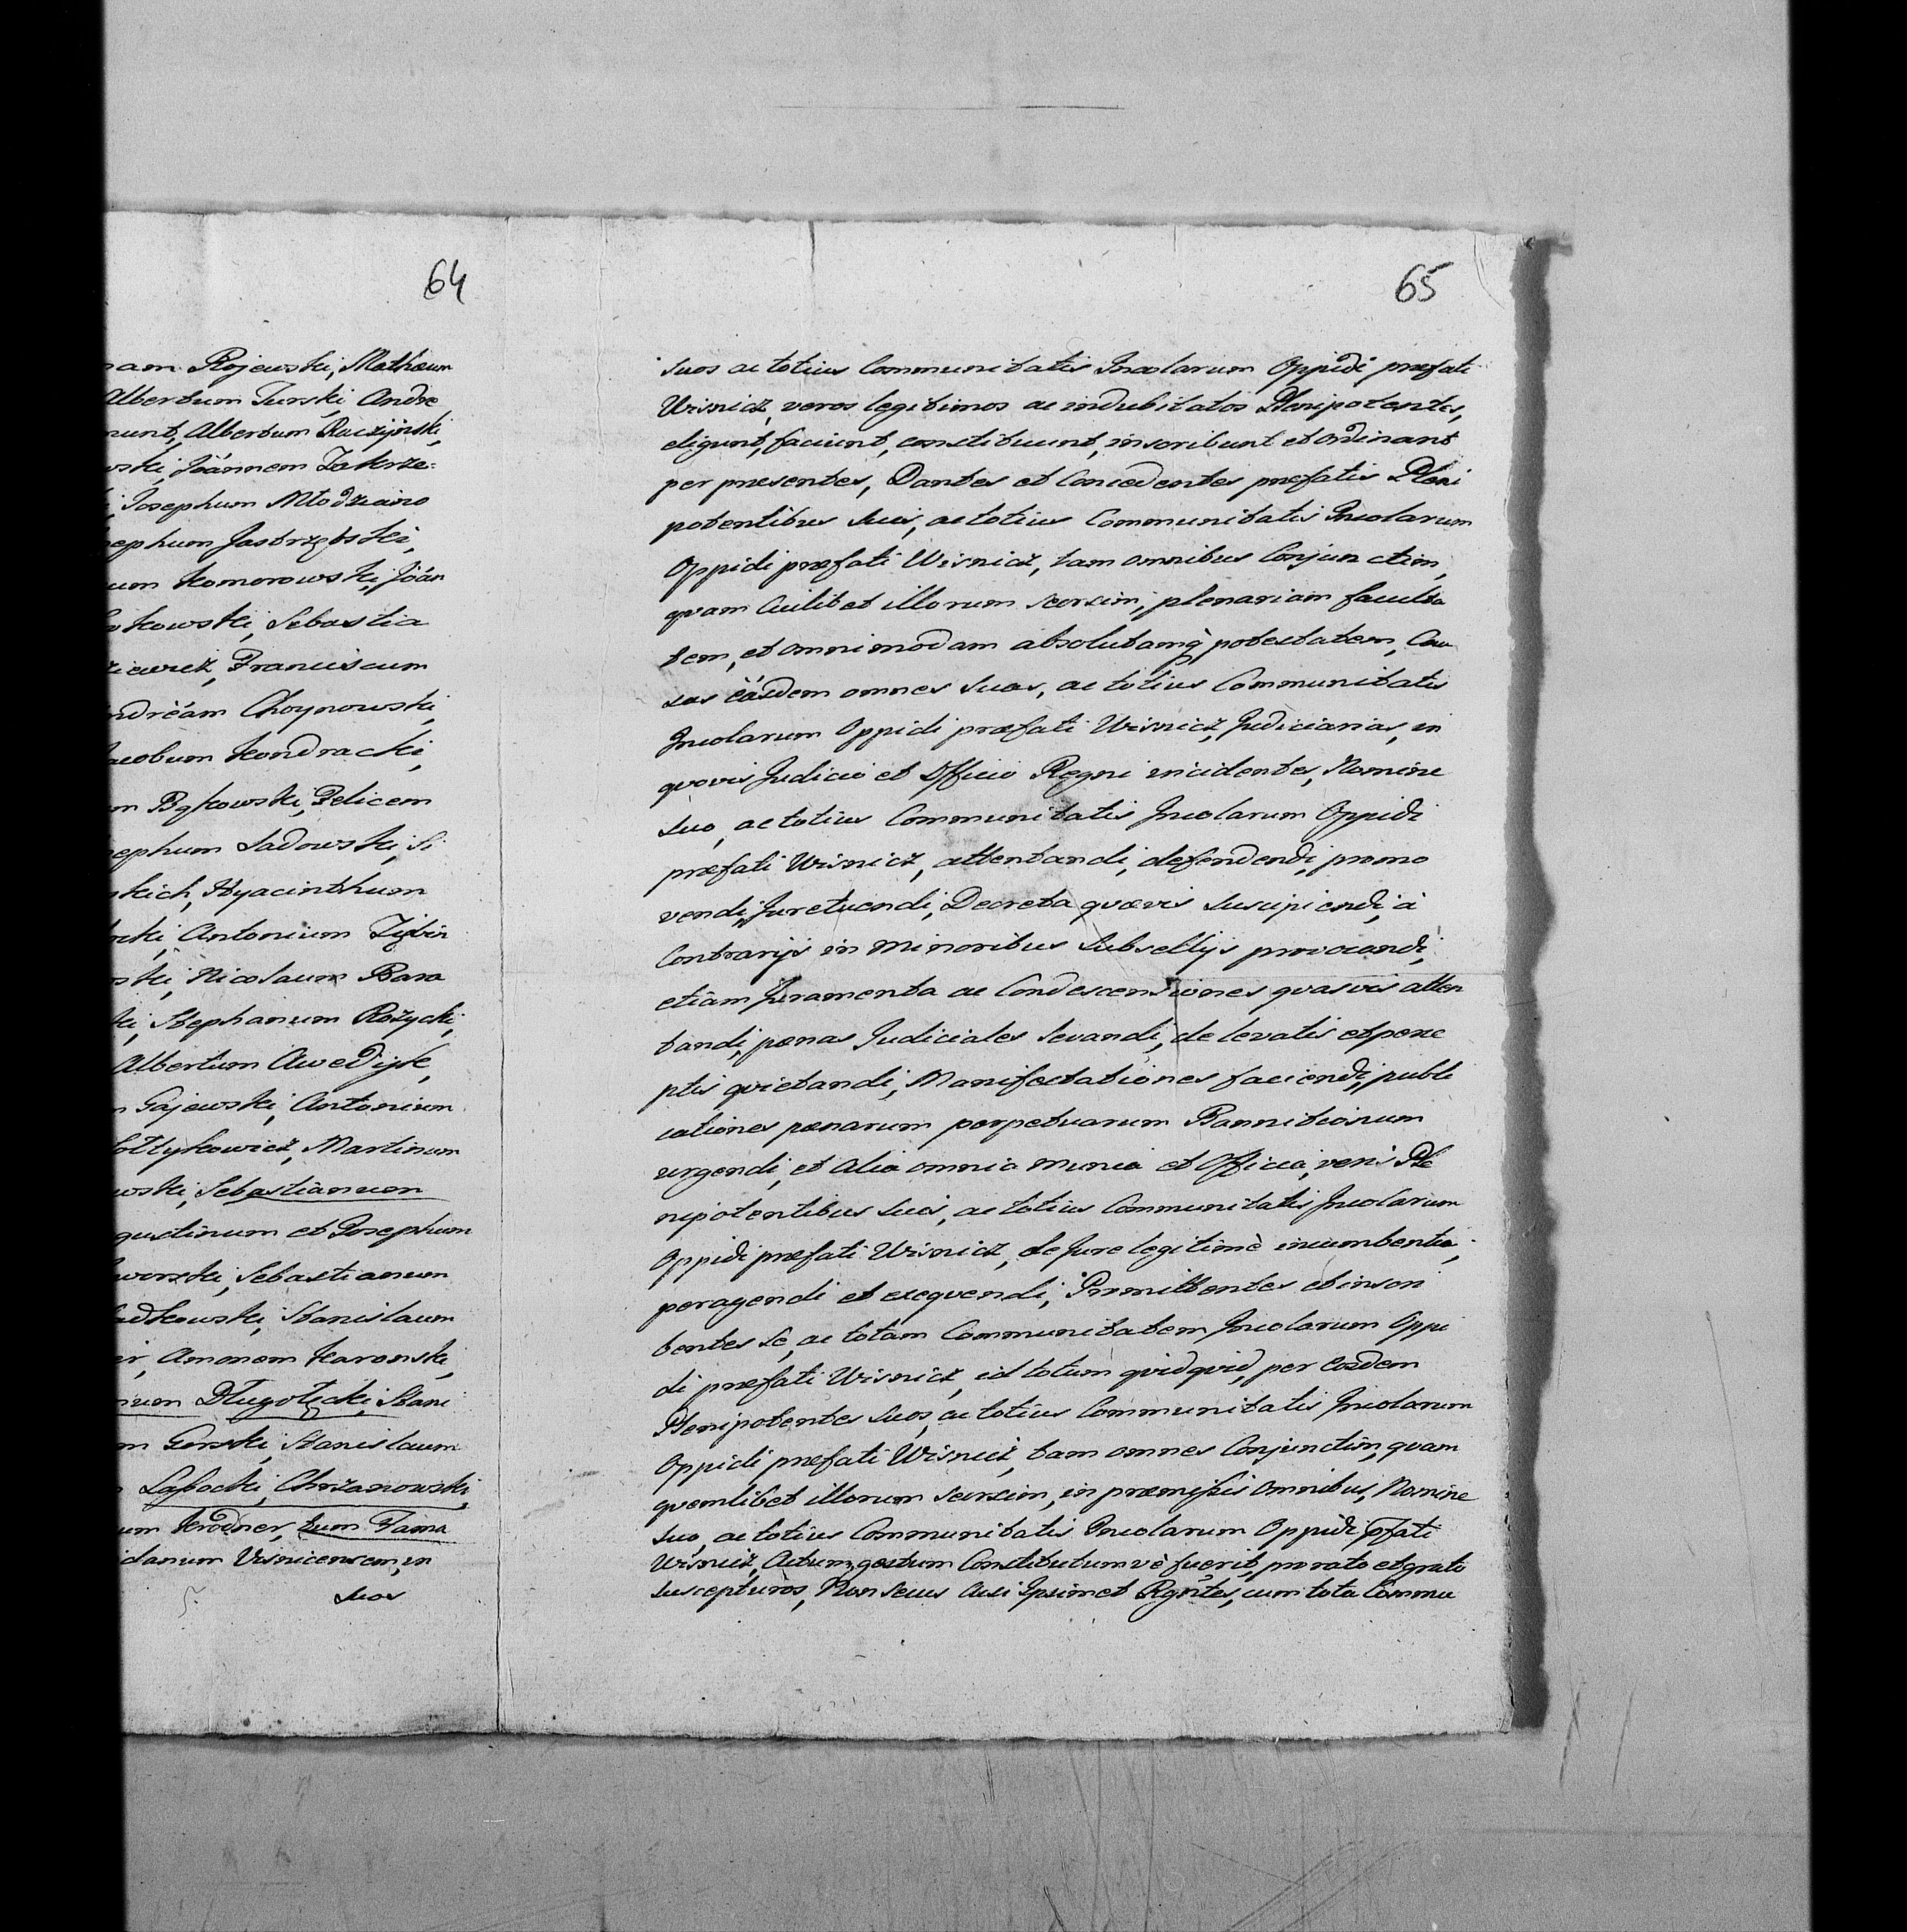 64
am Rojewski, Mathæum
Albertum Turski, Andre
munt, Albertum Raczÿnski,
wski, Joánnem Zakrze=
Josephum Młodziano
sephum Jastrzębski,
um Komorowski, Jóan
kowski, Sebastia
ziewicz, Franciscum
Andréam Choynowski,
acobum Kondracki,
m Bąkowski, Felicem
sephum Sadowski, Si
skich, Hyacinthum
Antonium
ski, Nicolaum Bara
ki, Stephanum Rożycki,
Albertum Awedÿk,
Gajewski, Antonium
ołtykowicz, Martinum
wski, Sebastiânum
gustinum et Josephum
worski, Sebastianum
adkowski, Stanislaum
Amonem Karonski,
num Długołęcki, Stani
m Gorski, Stanislaum
Chrzanowski,
um Krodner, tum Fama
danum Visnicensem, in
suos
65
suos ac totius Communitatis Incolarum Oppidi præfati
Wisnicz, veros legitimos ac indubitatos Plenipotentes,
eligunt, faciunt, constituunt, inscribunt et ordinant
per præsentes, Dantes et Concedentes præfatis Pleni
potentibus suis, ac totius Communitatis Incolarum
Oppidi præfati Wisnicz, tam omnibus Conjunctim,
quam Cuilibet illorum seorsim, plenariam faculta
tem, et omnimodam absolutamq̀ potestatem, Cau
sas eásdem omnes suas, ac totius Communitatis
Incolarum Oppidi præfati Wisnicz, Judiciarias, in
quovis Judicio et Officio Regni incidentes, Nomine
suo, ac totius Communitatis Incolarum Oppidi
præfati Wisnicz, attentandi, defendendi, promo
vendi, Jure tuendi, Decreta quævis suscipiendi, à
Contrarÿs in minoribus Subsellÿs provocandi,
etiâm Juramenta ac Condescensiones quasvis atten
tandi, pœnas Judiciales levandi, de levatis et perce
ptis quietandi, Manifestationes faciendi, publi
cationes pœnarum perpetuarum Bannitionum
urgendi, et alia omnia munia et Officia, veris Ple
nipotentibus suis, ac totius Communitatis Incolarum
Oppidi præfati Wisnicz, de Jure legitimè incumbentia,
peragendi et exequendi, Promittentes et inscri
bentes se, ac totam Communitatem Incolarum Oppi
di præfati Wisnicz, id totum quidquid, per eosdem
Plenipotentes suos, ac totius Communitatis Incolarum
Oppidi præfati Wisnicz, tam omnes Conjunctim, quam
quemlibet illorum seorsim, in præmissis omnibus, Nomine
suo, ac totius Communitatis Incolarum Oppidi pfati
Wisnicz, Actum, gestum Constitutum vè fuerit, pro rato et grato
suscepturos, Non secus ac si Ipsimet Rgntes, cum tota Commu